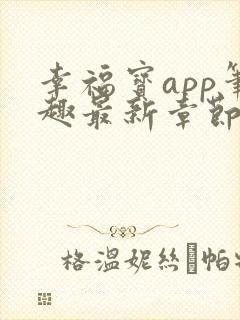 幸福寶app筆
趣最新章節
格溫妮絲·帕